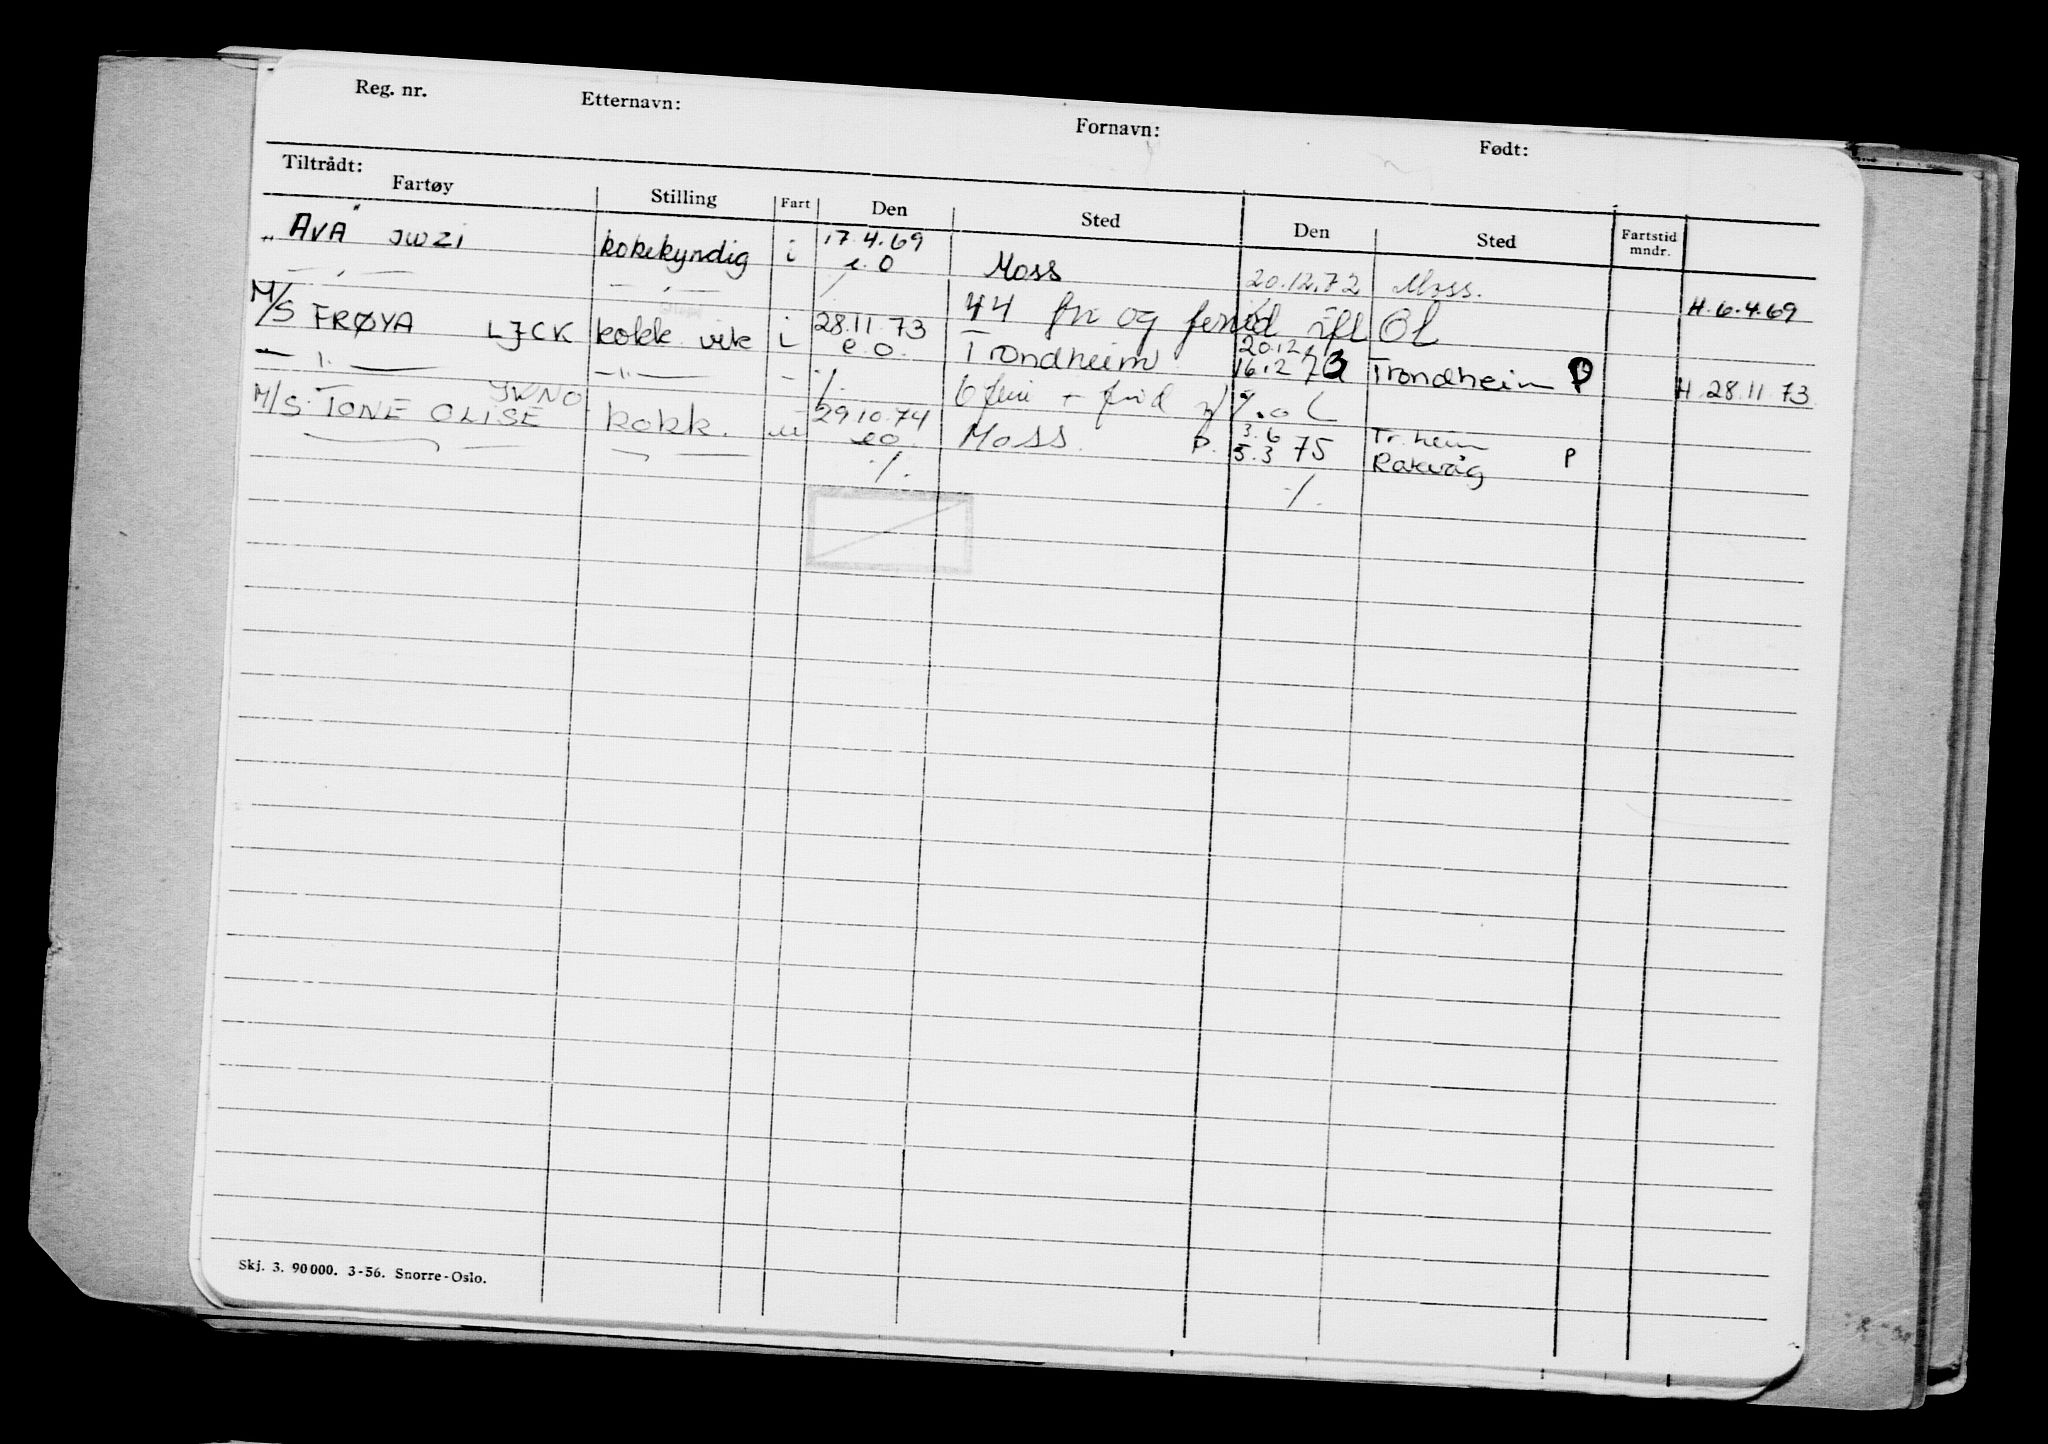 Reg. nr. Etternavn: Fornavn: Født:
Tiltrådt:
Fartøy Stilling Fart Den Sted Den Sted Fartstid mndr.
"AVA" JWZI kokekyndig i 17.4.69 e.o Moss 20.12.72 Moss.
44 og H. 6.4.69
M/S FRØYA LJCK kokk vik i 28.11.73 e.o. Trondheim 20.12 16.12 73 Trondheim P
H. 28.11.73
M/S. TONE ELISE JWNO kokk. u 29.10.74 eo Moss. P. 3.6 5.3 75 Tr.heim Rakvåg P
Skj. 3. 90000. 3-56. Snorre-Oslo.